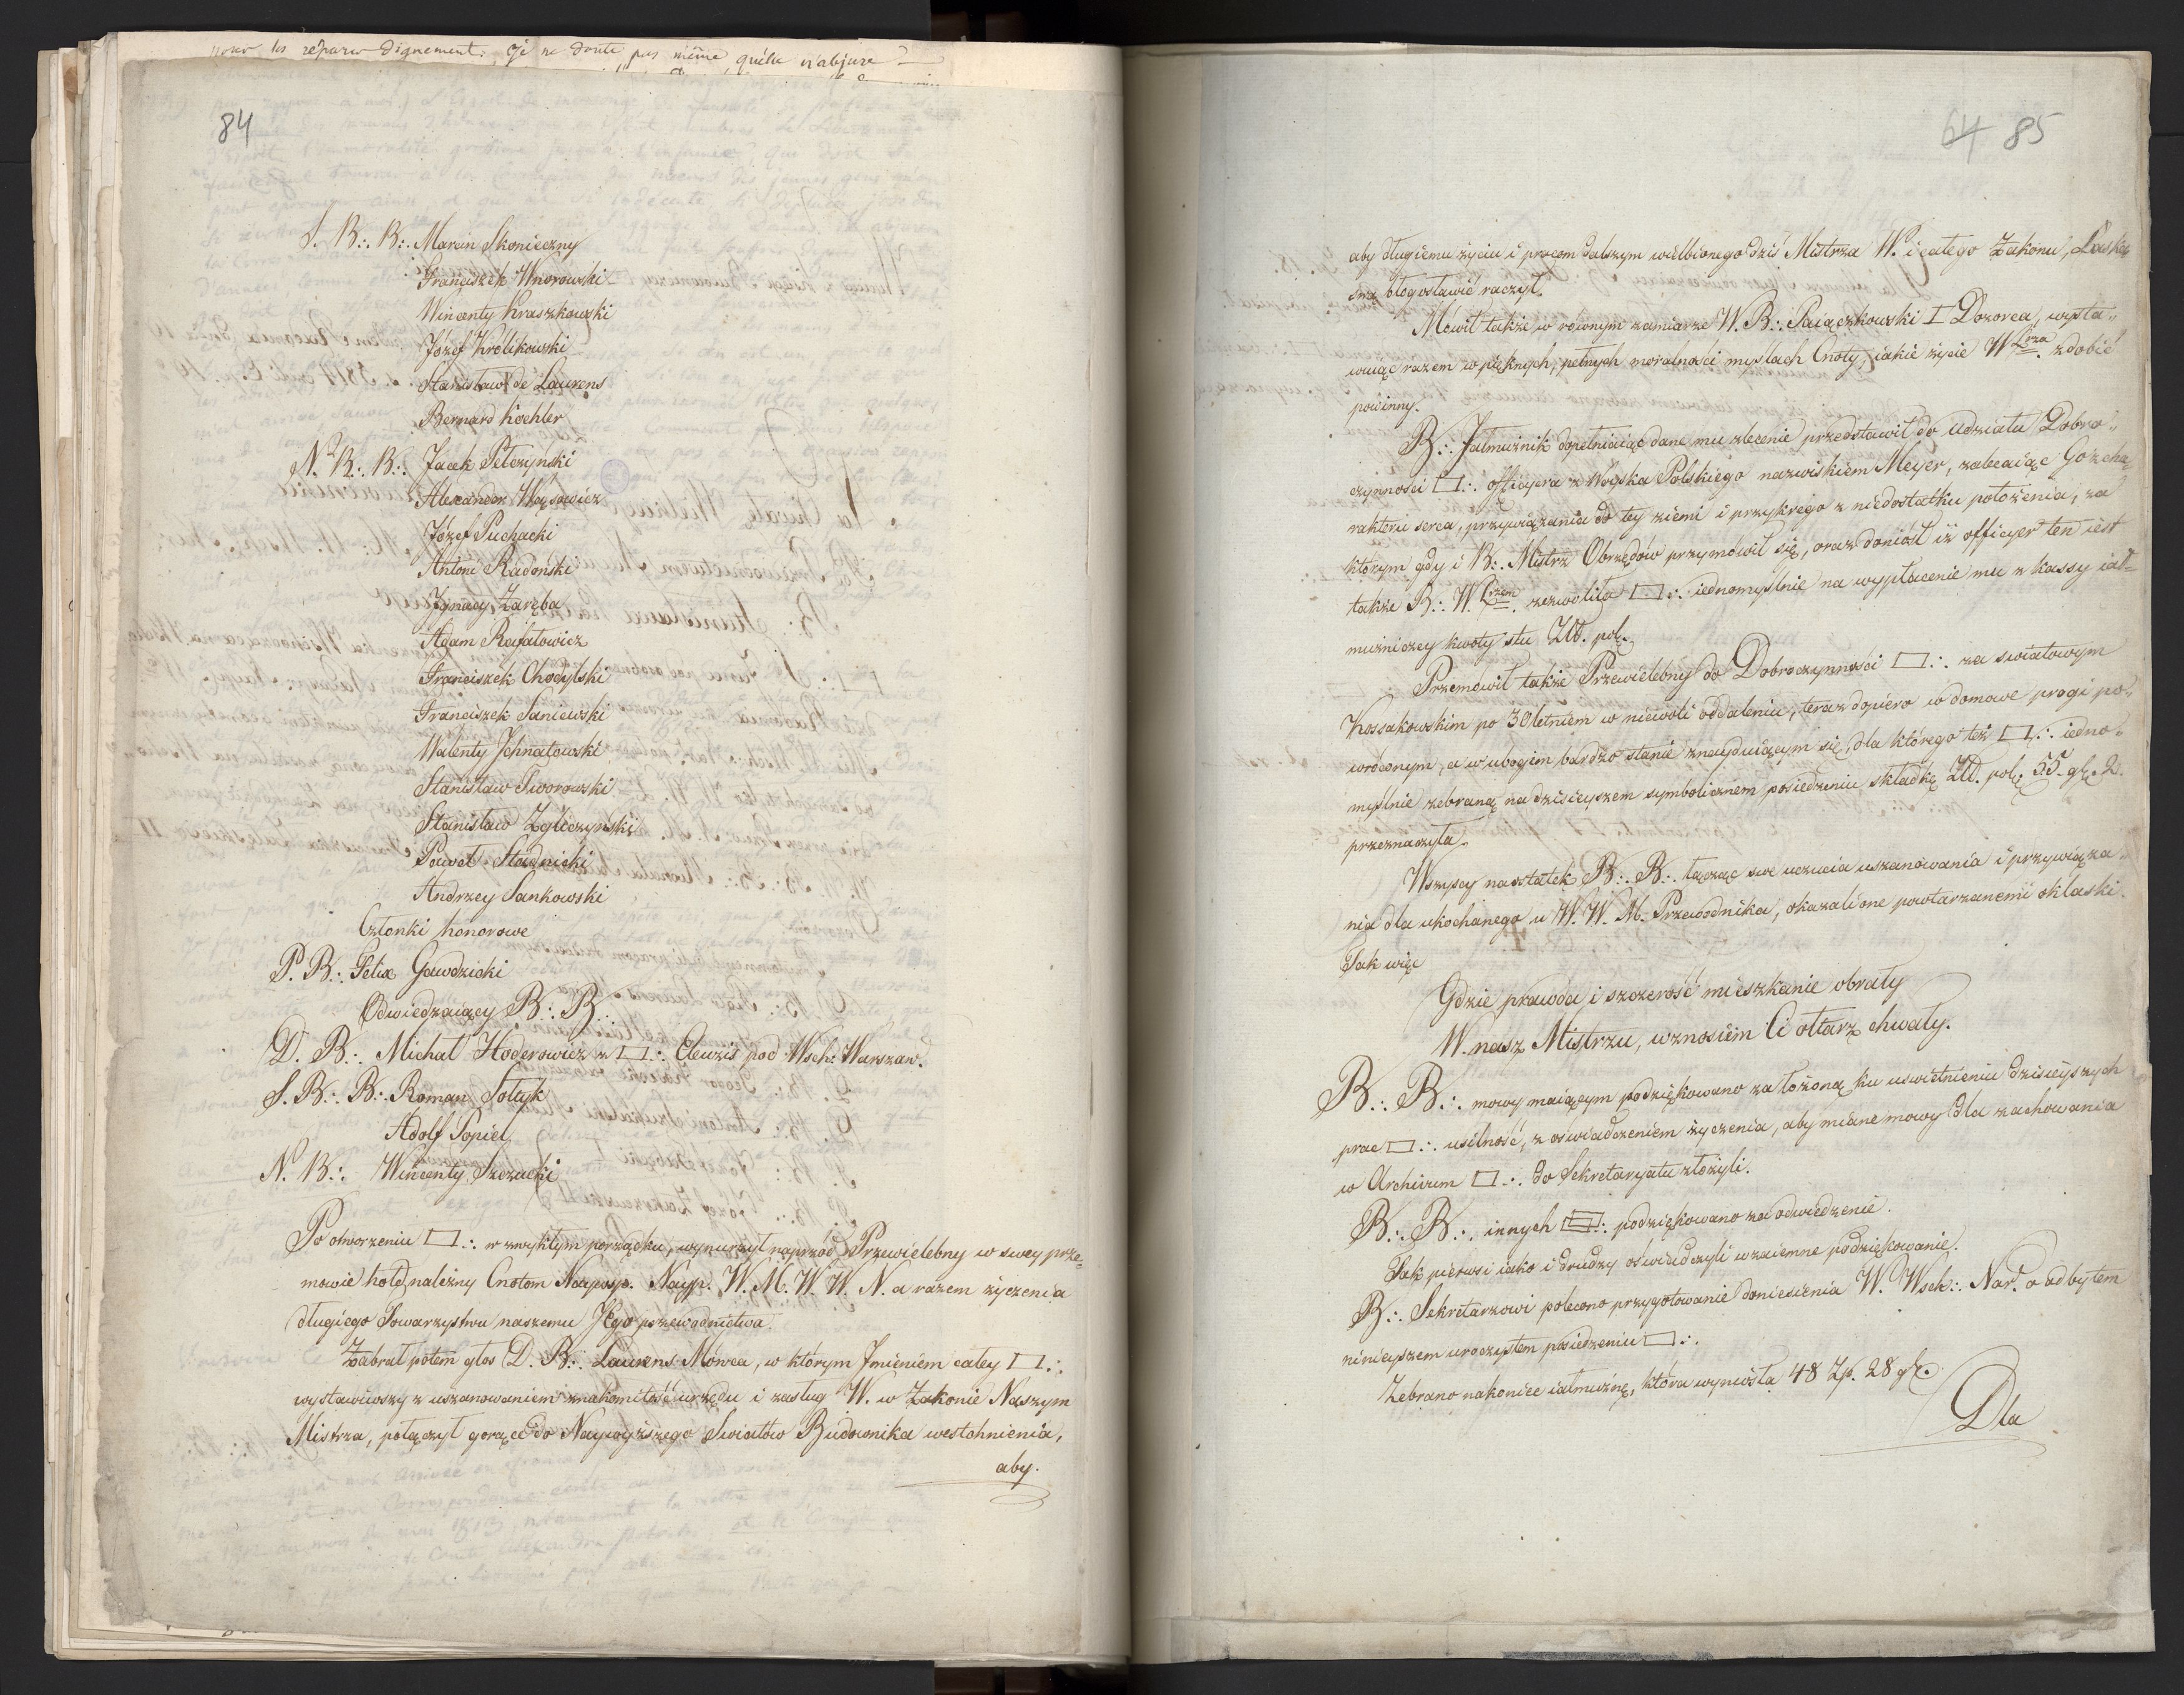 pour les réparer dignement. Je ne doute pas même qu'elle n'abjure
84
S. B∴ B∴ Marcin Skonieczny
Franciszek Wnorowski
Wincenty Kraszkowski
Józef Królikowski
Stanisław de Laurens
Bernard Kochler
N. B∴ B∴ Jacek Petczyński
Alexander Wąsowicz
Józef Puchacki
Antoni Radoński
Ignacy Zaręba
Adam Rafałowicz
Franciszek Chodylski
Franciszek Saniewski
Walenty Jchnatowski
Stanisław Sworowski
Stanisław Zgliczyński
Paweł Stadnicki
Andrzey Sankowski
Członki honorowe
P. B∴ Felix Gawdzicki
Odwiedzaiący B∴ B∴
D. B∴ Michał Hoderowicz z ▭∴ Eleuzis pod Wsch: Warszaw.
S. B∴ B∴ Roman Sołtyk
Adolf Popiel
N. B∴ Wincenty Szczucki
Po otworzeniu ▭∴ w zwykłym porządku, wynurzył naprzód Przewielebny w swey prze=
mowie hołd należny Cnotom Naywyp. Nayp. W. M. W. W. N. a razem życzenia
długiego Towarzystwu naszemu Jego przewodnictwa.
Zabrał potem głos D. B∴ Laurens Mówca, w którym Jmieniem całey ▭∴
wystawiwszy z uszanowaniem znakomitość urzędu i zasług W. w Zakonie Naszym
Mistrza, połączył gorące do Naywyższego Swiatów Budownika westchnienia,
aby.
64 85
aby długiemu życiu i pracom dalszym wielbionego dziś Mistrza W. i całego Zakonu, Łaską
swą błogosławić raczył.
Mówił także w równym zamiarze W. B∴ Paiączkowski I Dozorca, wysta„
wiaiąc razem w pięknych, pełnych moralności myslach Cnoty, iakie życie W Lrza. zdobić
powinny.
B∴ Jałmużnik dopełniaiąc dane mu zlecenie przedstawił do udziału Dobro„
czynności ▭∴ officyera z Woyska Polskiego nazwiskiem Meyer, zalecaiąc Go z cha„
rakteru serca, przywiązania do tey ziemi i przykrego z niedostatku położenia, za
którym gdy i B∴ Mistrz Obrzędów przymówił się, oraz doniósł iż officyer ten iest
także B∴ W. Lrzem. zezwoliła ▭∴ iednomyślnie na wypłacenie mu z kassy iał=
mużniczey kwoty stu Złł. pol.
Przemówił także Przewielebny do Dobroczynności ▭∴ za swiatowym
Kossakowskim po 30 letniem w niewoli oddaleniu, teraz dopiero w domowe progi po„
wróconym, a w ubogim bardzo stanie znayduiącym się, dla którego też ▭∴ iedno„
myślnie zebraną na dzisieyszem symbolicznem posiedzeniu składkę Złł. pol. 55. gr. 2.
przeznaczyła.
Wszyscy naostatek B∴ B∴ łącząc swe uczucia uszanowania i przywiąza„
nia dla ukochanego u W. W. M. Przewodnika, okazali one powtarzanemi oklaski.
Tak więc
Gdzie prawda i szczerość mieszkanie obrały
W. nasz Mistrzu, wznosiem Ci ołtarz chwały.
B∴ B∴ mowy maiącym podziękowano za łożoną ku uswietnieniu dzisieyszych
prac ▭∴ usilność, z oswiadczeniem życzenia, aby miane mowy dla zachowania
w Archivum ▭∴ do Sekretaryatu złożyli.
B∴ B∴ innych ▭∴ podziękowano za odwiedzenie.
Tak pierwsi iako i drudzy oswiadczyli wzaiemne podziękowanie.
B∴ Sekretarzowi polecono przygotowanie doniesienia W. Wsch∴ Nar. o odbytem
ninieyszem uroczystem posiedzeniu ▭∴
Zebrano nakoniec iałmużnę, która wyniosła 48 Zp. 28 gr.
Dla